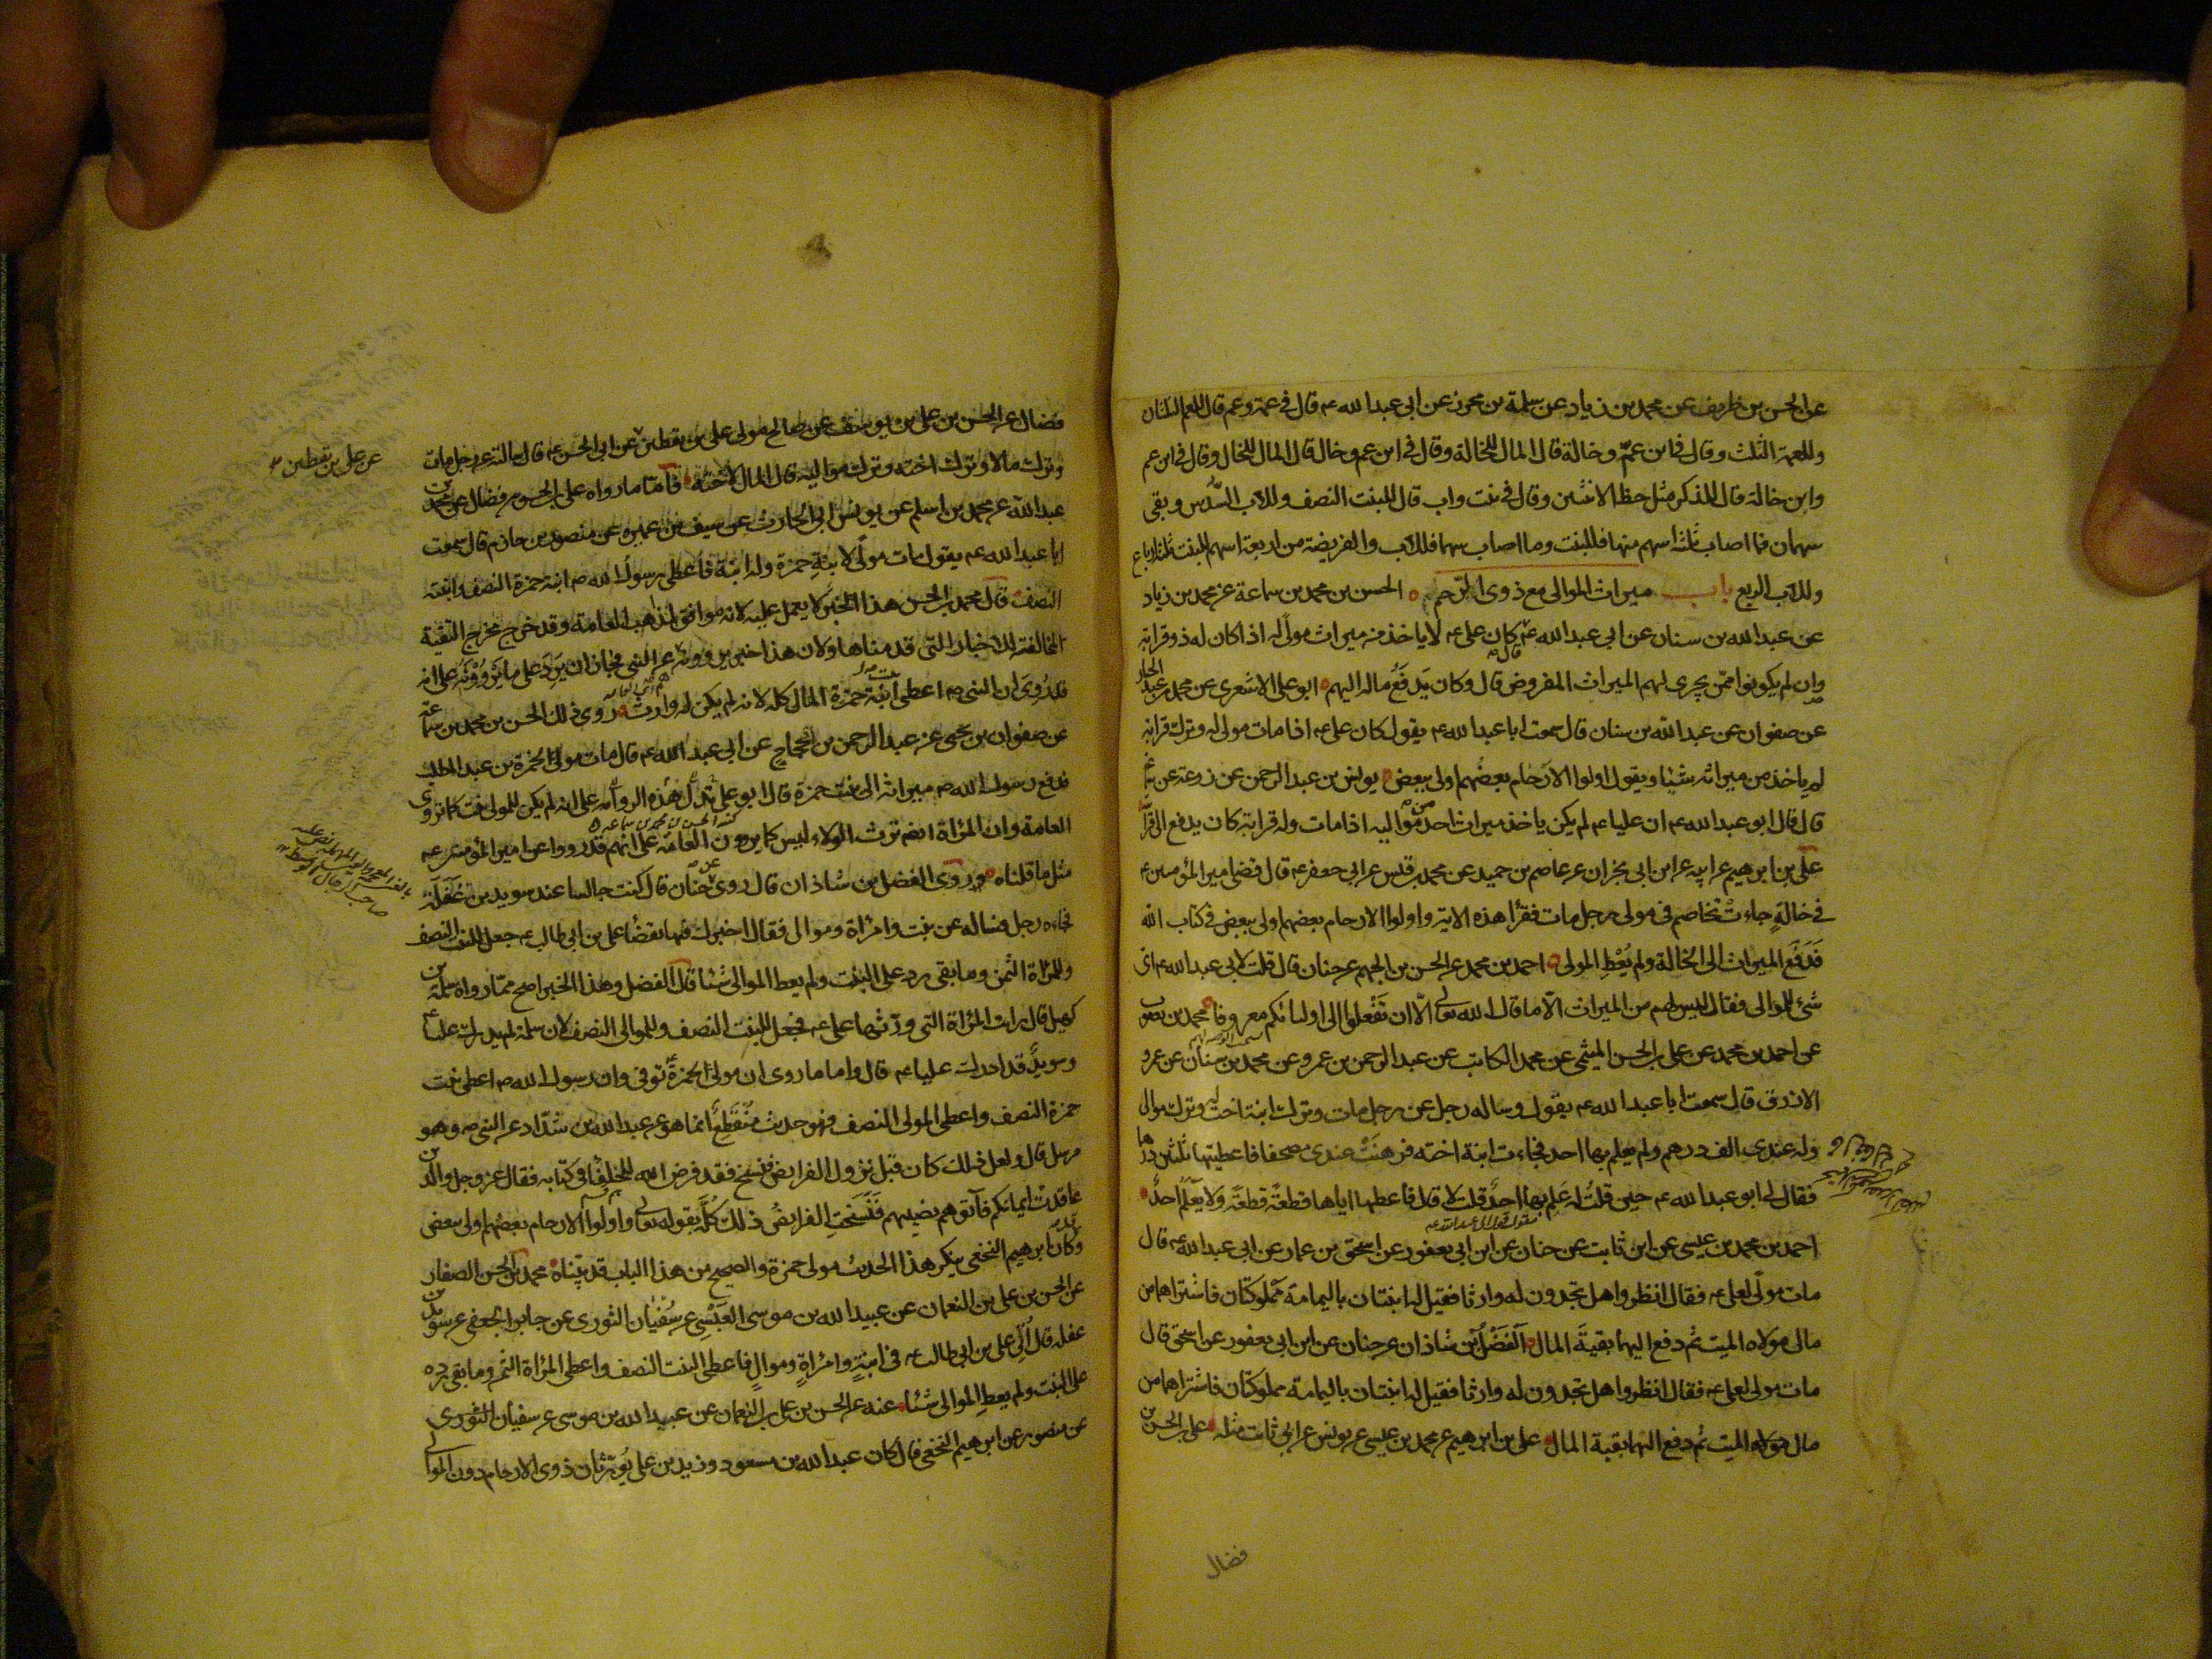 عن الحسن بن ظريف عن محمد بن زياد عن سلمة بن محرز عن ابى عبد الله ع قال فى عمة وعم قال للعم الثلثان
وللعمة الثلث وقال فى ابن عم وخالة قال المال للخالة وقال فى ابن عم وخال قال المال للخال وقال فى ابن عم
وابن خالة قال للذكر مثل حظ الانثيين وقال فى بنت واب قال للبنت النصف وللاب السُّدس وبقى
سهمان فما اصاب ثلثة اسهم منها فللبنت وما اصاب سهما فللاب والفريضة من اربعة اسهم للبنت ثلثة ارباع
وللاب الربع باب ميراث الموالى مع ذوى الرّحم الحسن بن محمد بن سماعة عن محمد بن زياد
عن عبد الله بن سنان عن ابى عبد الله ع قال كان على ع لا ياخذ من ميراث مولًى له اذا كان له ذو قرابة
وان لم يكونوا ممّن يجرى لهم الميراث المفروض قال وكان يَدفَعُ ماله اليهم ابو على الاشعرى عن محمد بن عبد الجبار
عن صفوان عن عبد الله بن سنان قال سمعت ابا عبد الله ع يقول كان على ع اذا مات مولى له وترك قرابة
لم ياخذ من ميراثه شيئا ويقول اولوا الارحام بعضهم اولى ببعض يونس بن عبد الرحمن عن زرعة عن سماعة
قال قال ابو عبد الله ع ان عليا ع لم يكن ياخذ ميراث احد من مواليه اذا مات وله قرابة كان يدفع الى قرابته
على بن ابرهيم عن ابيه عن ابن ابى نجران عن عاصم بن حميد عن محمد بن قيس عن ابى جعفر ع قال قضى امير المؤمنين ع
فى خالةٍ جاءت تُخاصم فى مولى رجل مات فقرأ هذه الاية واولوا الارحام بعضهم اولى ببعض فى كتاب الله
فَدَفَعَ الميراث الى الخالة ولم يُعْطِ المولى احمد بن محمد عن الحسن بن الجهم عن حنان قال قلت لابى عبد الله ع اى
شئ للموالى فقال ليس لهم من الميراث الّا ما قال الله تعالى الّا ان تَفْعلوا الى اوليائكم معروفا محمد بن يعقوب
عن احمد بن محمد عن على بن الحسن الميثمى عن محمد الكاتب عن عبد الرحمن بن عمرو عن محمد بن سنان عن عمرو
الازرق قال سمعت ابا عبد الله ع يقول وساله رجل عن رجل مات وترك ابنة اخت له وترك موالى
وله عندى الف درهم ولم يعلم بها احد فجاءت ابنة اخته فرهنَتْ عندى مصحفا فاعطيتها ثلثين درهما
فقال لى ابو عبد الله ع حين قلتُ له عَلِم بها احدٌ قلت لا قال فاعطها اياها قطعةً قطعةً ولا يَعْلَمُ احدٌ
احمد بن محمد بن عيسى عن ابن ثابت عن حنان عن ابن ابى يعفور عن اسحق بن عمار عن ابى عبد الله ع قال
مات مولًى لعلى ع فقال انظروا هل تجدون له وارثا فقيل له ابنتان باليمامة مملوكتان فاشتراهما من
مال مولاه الميت ثم دفع اليهما بقيةَ المال الفَضْلُ بن شاذان عن حنان عن ابن ابى يعفور عن اسحق قال
مات مولى لعلى ع فقال انظروا هل تجدون له وارثا فقيل له ابنتان باليمامة مملوكتان فاشتراهما من
مال مولاه الميت ثم دفع اليهما بقية المال على بن ابرهيم عن محمد بن عيسى عن يونس عن ابى ثابت مثله على بن الحسن بن
فضال
فضال عن الحسن بن على بن يوسف عن صالح مولى على بن يقطين عن ابى الحسن ع قال سالته عن رجل مات
عن على بن يقطين
وترك مالا وترك اخته وترك مواليه قال المال لاخته فامّا ما رواه على بن الحسن بن فضال عن محمد بن
عبد الله عن محمد بن اسلم عن يونس ابى الحارث عن سيف بن عميره عن منصور بن حازم قال سمعت
ابا عبد الله ع يقول مات مولًى لابنةِ حمزة وله ابنة فاعطى رسول الله ص ابنة حمزة النصف وابنته
النصف قال محمد بن الحسن هذا الخبر لا يعمل عليه لانه موافق لمذهب العامة وقد خرج مخرج التقية
لمخالفته للاخبار التى قدمناها ولان هذا خبر يروونه عن النبى فجاز ان يَرِد على ما يَرْوُونَه على انه
قد رُوِىَ ان النبى ص اعطى ابنة حمزة المال كله لانه لم يكن له وارث روى ذلك الحسن بن محمد بن سماعة
عن صفوان بن يحيى عن عبد الرحمن بن الحجاج عن ابى عبد الله ع قال مات مولى لحمزة بن عبد المطلب
فدفع رسول الله ص ميراثه الى بنت حمزة قال ابو على تدلُّ هذه الرواية على انه لم يكن للمولى بنت كما تروى
العامة وان المرأة ايضا ترث الولاء ليس كما يروون العامة على انهم قد رووا عن امير المؤمنين ع
مثل ما قلناه وروى الفضل بن شاذان قال روى عن حنان قال كنت جالسا عند سويد بن غَفَلَة
فجاءه رجل فساله عن بنت وامرأة وموالى فقال اخبرك فيها بقضاء على بن ابى طالب ع جعل للبنت النصف
وللمرأة الثمن وما بقى رد على البنت ولم يعط الموالى شيئا قال الفضل وهذا الخبر اصح ممّا رواه سلمة بن
كهيل قال رايت المرأة التى ورّثها على ع فجعل للبنت النصف وللموالى النصف لان سلمة لم يدرك عليا ع
وسويدٌ قد ادرك عليا ع قال واما ما روى ان مولًى لحمزة توفى وان رسول الله ص اعطى بنت
حمزة النصف واعطى المولى النصف فهو حديث منقطع انما هو عن عبد الله بن شدّاد عن النبى ص وهو
مرسل قال ولعل ذلك كان قبل نزول الفرايض فنسخ فقد فرض الله للحلفاء فى كتابه فقال عز وجل والذين
عاقدت ايمانكم فآتوهم نصيبهم فنَسَخت الفرايضُ ذلك كلَّه بقوله تعالى واولوا الارحام بعضهم اولى ببعض
وكان ابرهيم النخعى ينكر هذا الحديث مولى حمزة والصحيح من هذا الباب قد بيّناه محمد بن الحسن الصفار
عن الحسن بن على بن النعمان عن عبيد الله بن موسى العَبْسى عن سُفيان الثورى عن جابر الجعفى عن سويد بن
غفله قال أُتى على بن ابى طالب ع فى ابنةٍ وامرأةٍ وموالٍ فاعطى البنت النصف واعطى المرأة الثمن وما بقى رده
على البنت ولم يعطِ الموالى شيئا عنه عن الحسن بن على بن النعمان عن عبيد الله بن موسى عن سفيان الثورى
عن منصور عن ابرهيم النخعى قال كان عبد الله بن مسعود وزيد بن على يُورّثان ذوى الارحام دون الموالى